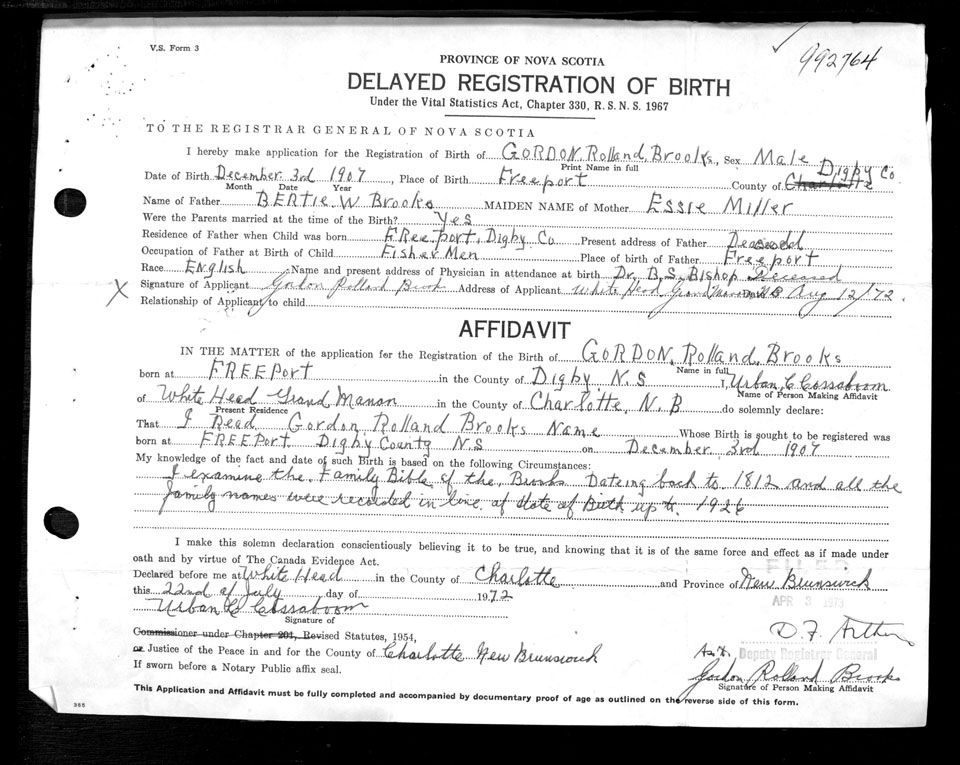 V.S. Form 3
992764
PROVINCE OF NOVA SCOTIA
DELAYED REGISTRATION OF BIRTH
Under the Vital Statistics Act, Chapter 330, R.S.N.S. 1967
TO THE REGISTRAR GENERAL OF NOVA SCOTIA
I hereby make application for the Registration of Birth of GORDON Rolland Brooks, Sex Male
Print Name in full
Digby Co
Date of Birth December 3rd 1907, Place of Birth Freeport County of Charlotte
Month Date Year
Name of Father BERTIE W Brooks MAIDEN NAME of Mother ESSIE Miller
Were the Parents married at the time of the Birth? Yes
Residence of Father when Child was born FReeport, Digby Co Present address of Father
Occupation of Father at Birth of Child Fisher Men Place of birth of Father Freeport
Race English Name and present address of Physician in attendance at birth Dr. B.S. Bishop Deceased
X Signature of Applicant Gordon Rolland Brook Address of Applicant White Head Grand Manan N B Date Aug 12/72
Relationship of Applicant to child
AFFIDAVIT
IN THE MATTER of the application for the Registration of the Birth of GORDON, Rolland, Brooks
Name in full
born at FREEPort in the County of Digby, N.S I, Urban C Cossaboom
Name of Person Making Affidavit
of White Head Grand Manan in the County of Charlotte, N.B do solemnly declare:
Present Residence
That I Read Gordon Rolland Brooks Name Whose Birth is sought to be registered was
born at FREEPort Digby County N.S on December 3rd 1907
My knowledge of the fact and date of such Birth is based on the following Circumstances:
I examine the Family Bible of the Brooks Dateing back to 1812 and all the
family names were recorded in line of date of Birth up to 1926
I make this solemn declaration conscientiously believing it to be true, and knowing that it is of the same force and effect as if made under
oath and by virtue of The Canada Evidence Act.
FILED
Declared before me at White Head in the County of Charlotte and Province of New Brunswick
this 22nd of July day of 1972
APR 3 1973
Urban C Cossaboom
Signature of
D. F. Arthur
Commissioner under Chapter 201, Revised Statutes, 1954,
Ass't. Deputy Registrar General
or Justice of the Peace in and for the County of Charlotte New Brunswick
Gordon Rolland Brooks
If sworn before a Notary Public affix seal.
Signature of Person Making Affidavit
This Application and Affidavit must be fully completed and accompanied by documentary proof of age as outlined on the reverse side of this form.